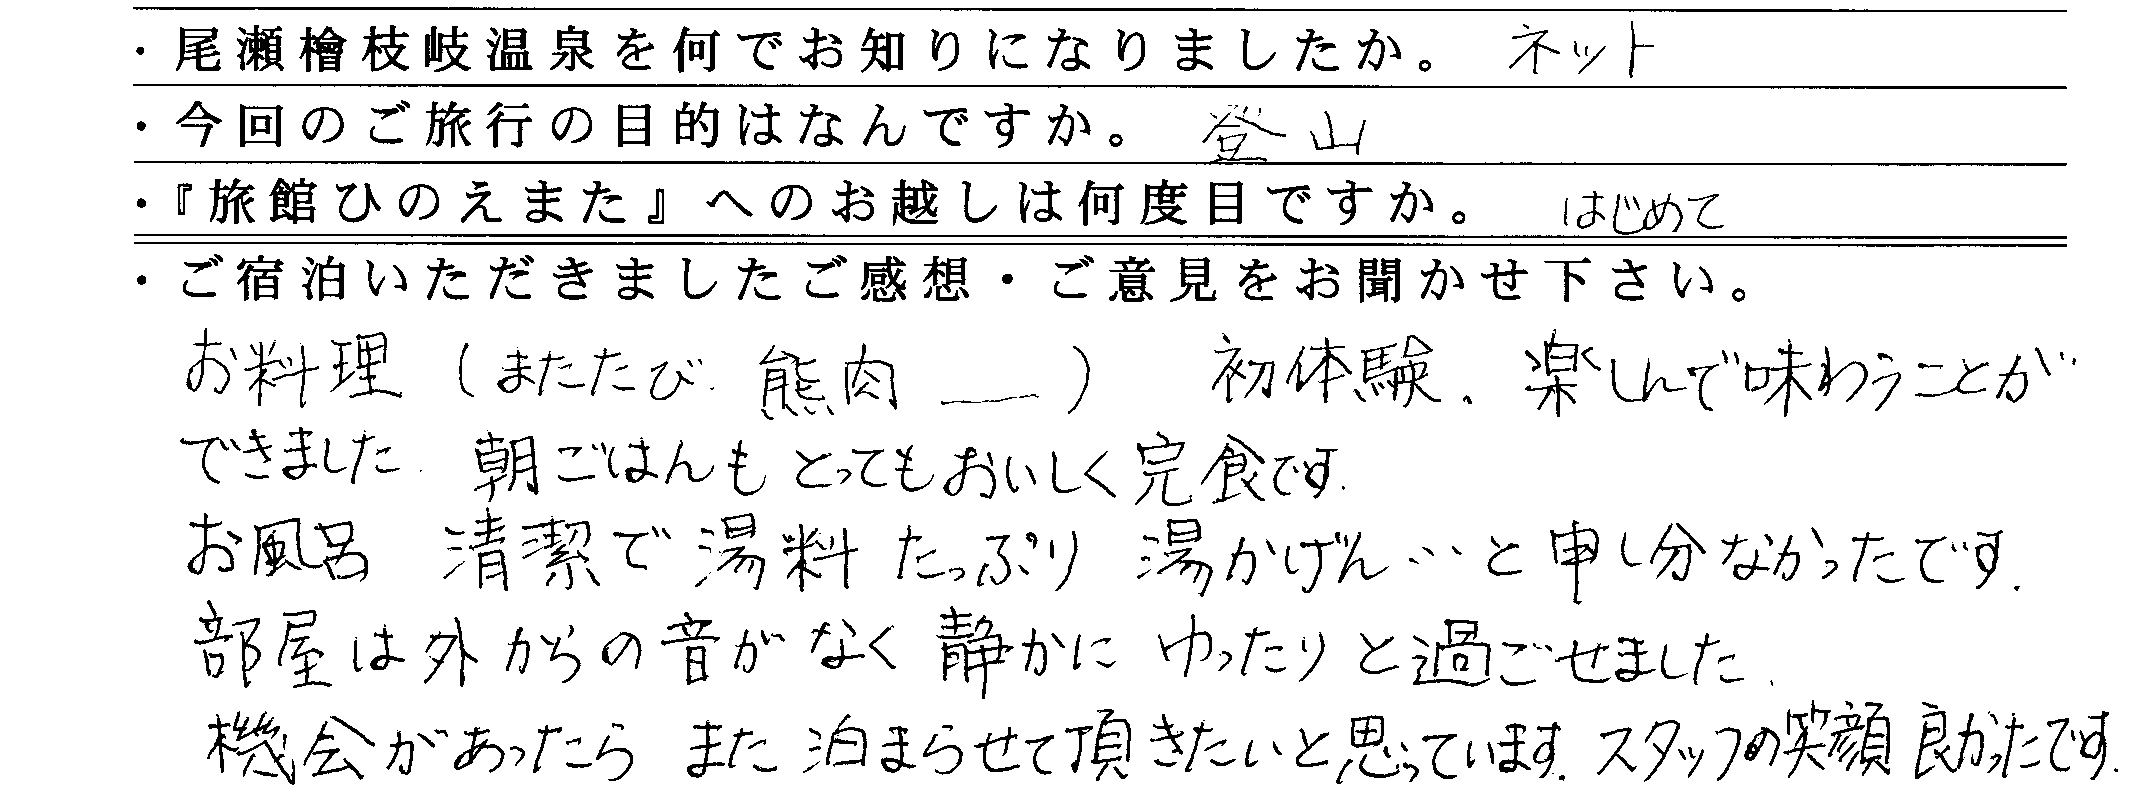 ・尾瀬檜枝岐温泉を何でお知りになりましたか。 ネット
・今回のご旅行の目的はなんですか。 登山
・『旅館ひのえまた』へのお越しは何度目ですか。 はじめて
・ご宿泊いただきましたご感想・ご意見をお聞かせ下さい。
お料理（またたび. 熊肉 ―） 初体験、楽しんで味わうことが
できました. 朝ごはんもとってもおいしく完食です.
お風呂 清潔で湯料たっぷり 湯かげん…と申し分なかったです.
部屋は外からの音がなく静かに ゆったりと過ごせました.
機会があったら また泊まらせて頂きたいと思っています. スタッフの笑顔良かったです.